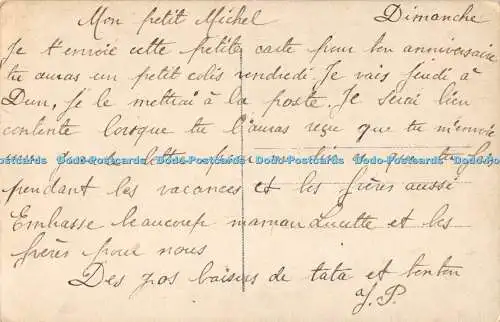 Mon petit Michel Dimanche
Je t'envoie cette petite carte pour ton anniversaire
tu auras un petit colis vendredi. Je vais jeudi à
Dun, je le mettrai à la poste. Je serai bien
contente lorsque tu l'auras reçu que tu m'envoie
Dodo-Postcards Dodo-Postcards Dodo-Postcards Dodo-Postcards Dodo-Postcards
pendant les vacances et les frères aussi
Embrasse beaucoup maman Lucette et les
frères pour nous
Des gos baisers de tata et tonton
J. P.